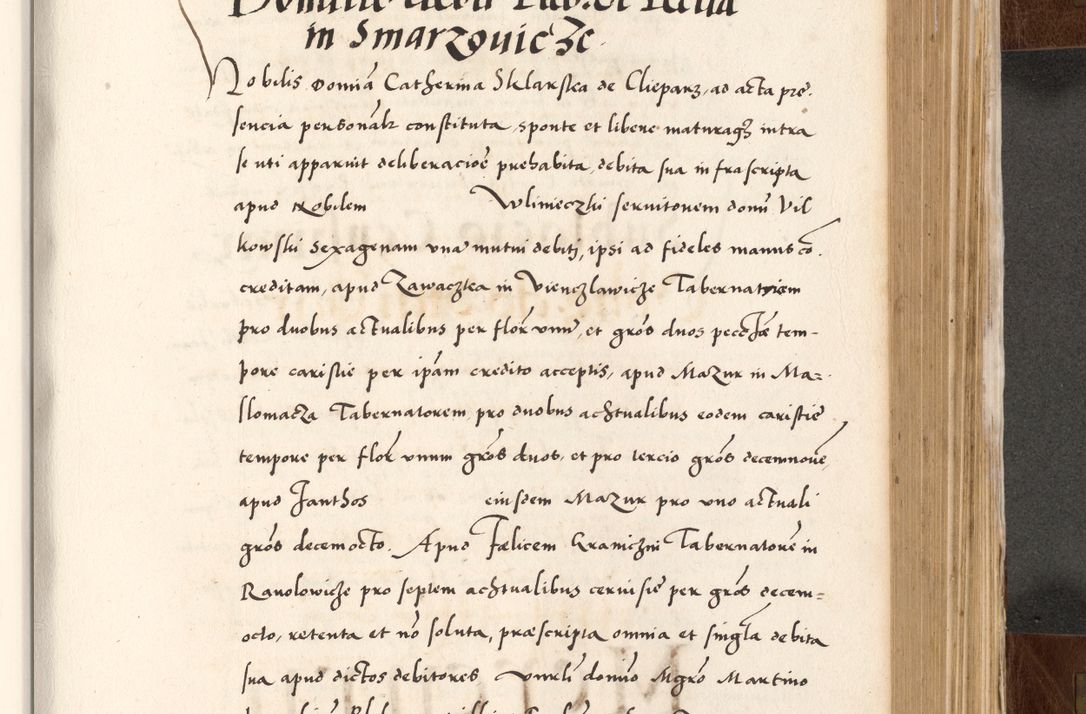 in Smarzovicze
Nobilis Domiā Catherina Sklarska de Clieparz, ad acta pre.
sencia personalr constituta, sponte et libere maturaqz intra
se uti apparuit deliberacioē prehabita, debita sua infrascripta
apud Nobilem Wlinieczki servitorem domi Vil
kowski sexagenam una mutui debiti, ipsi ad fideles manus cō.
creditam, apud Zawaczka in Vienczlawicze Tabernatricem
pro duobus actualibus per flor unū, et gros duos tem-
pore caristie per ipam credito acceptis, apud Mazur in Ma=
slomacza Tabernatorem pro duobus achtualibus eodem caristie
tempore per flor unum gros duos, et pro tercio gros decemnove,
apud Janthos eiusdem Mazur pro uno actuali
gros decemocto. Apud Fælicem Graniczni Tabernatorē in
Ravolowicze pro septem achtualibus cervisie per gros decem=
octo, retenta et nō soluta, præscripta omnia et singla debita
sua apud dictos debitores domīo Mgro Martino